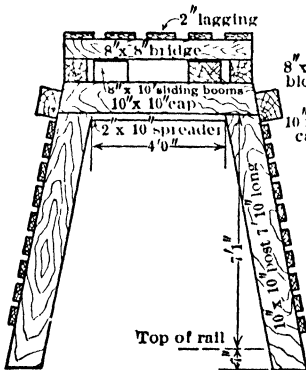 2" lagging
8" x 8" bridge
8" x
blo
8" x 10" sliding booms
10" x 10" cap
10"
ca
2" x 10" spreader
4'0"
10" x 10" post 7'10" long
7'1"
Top of rail